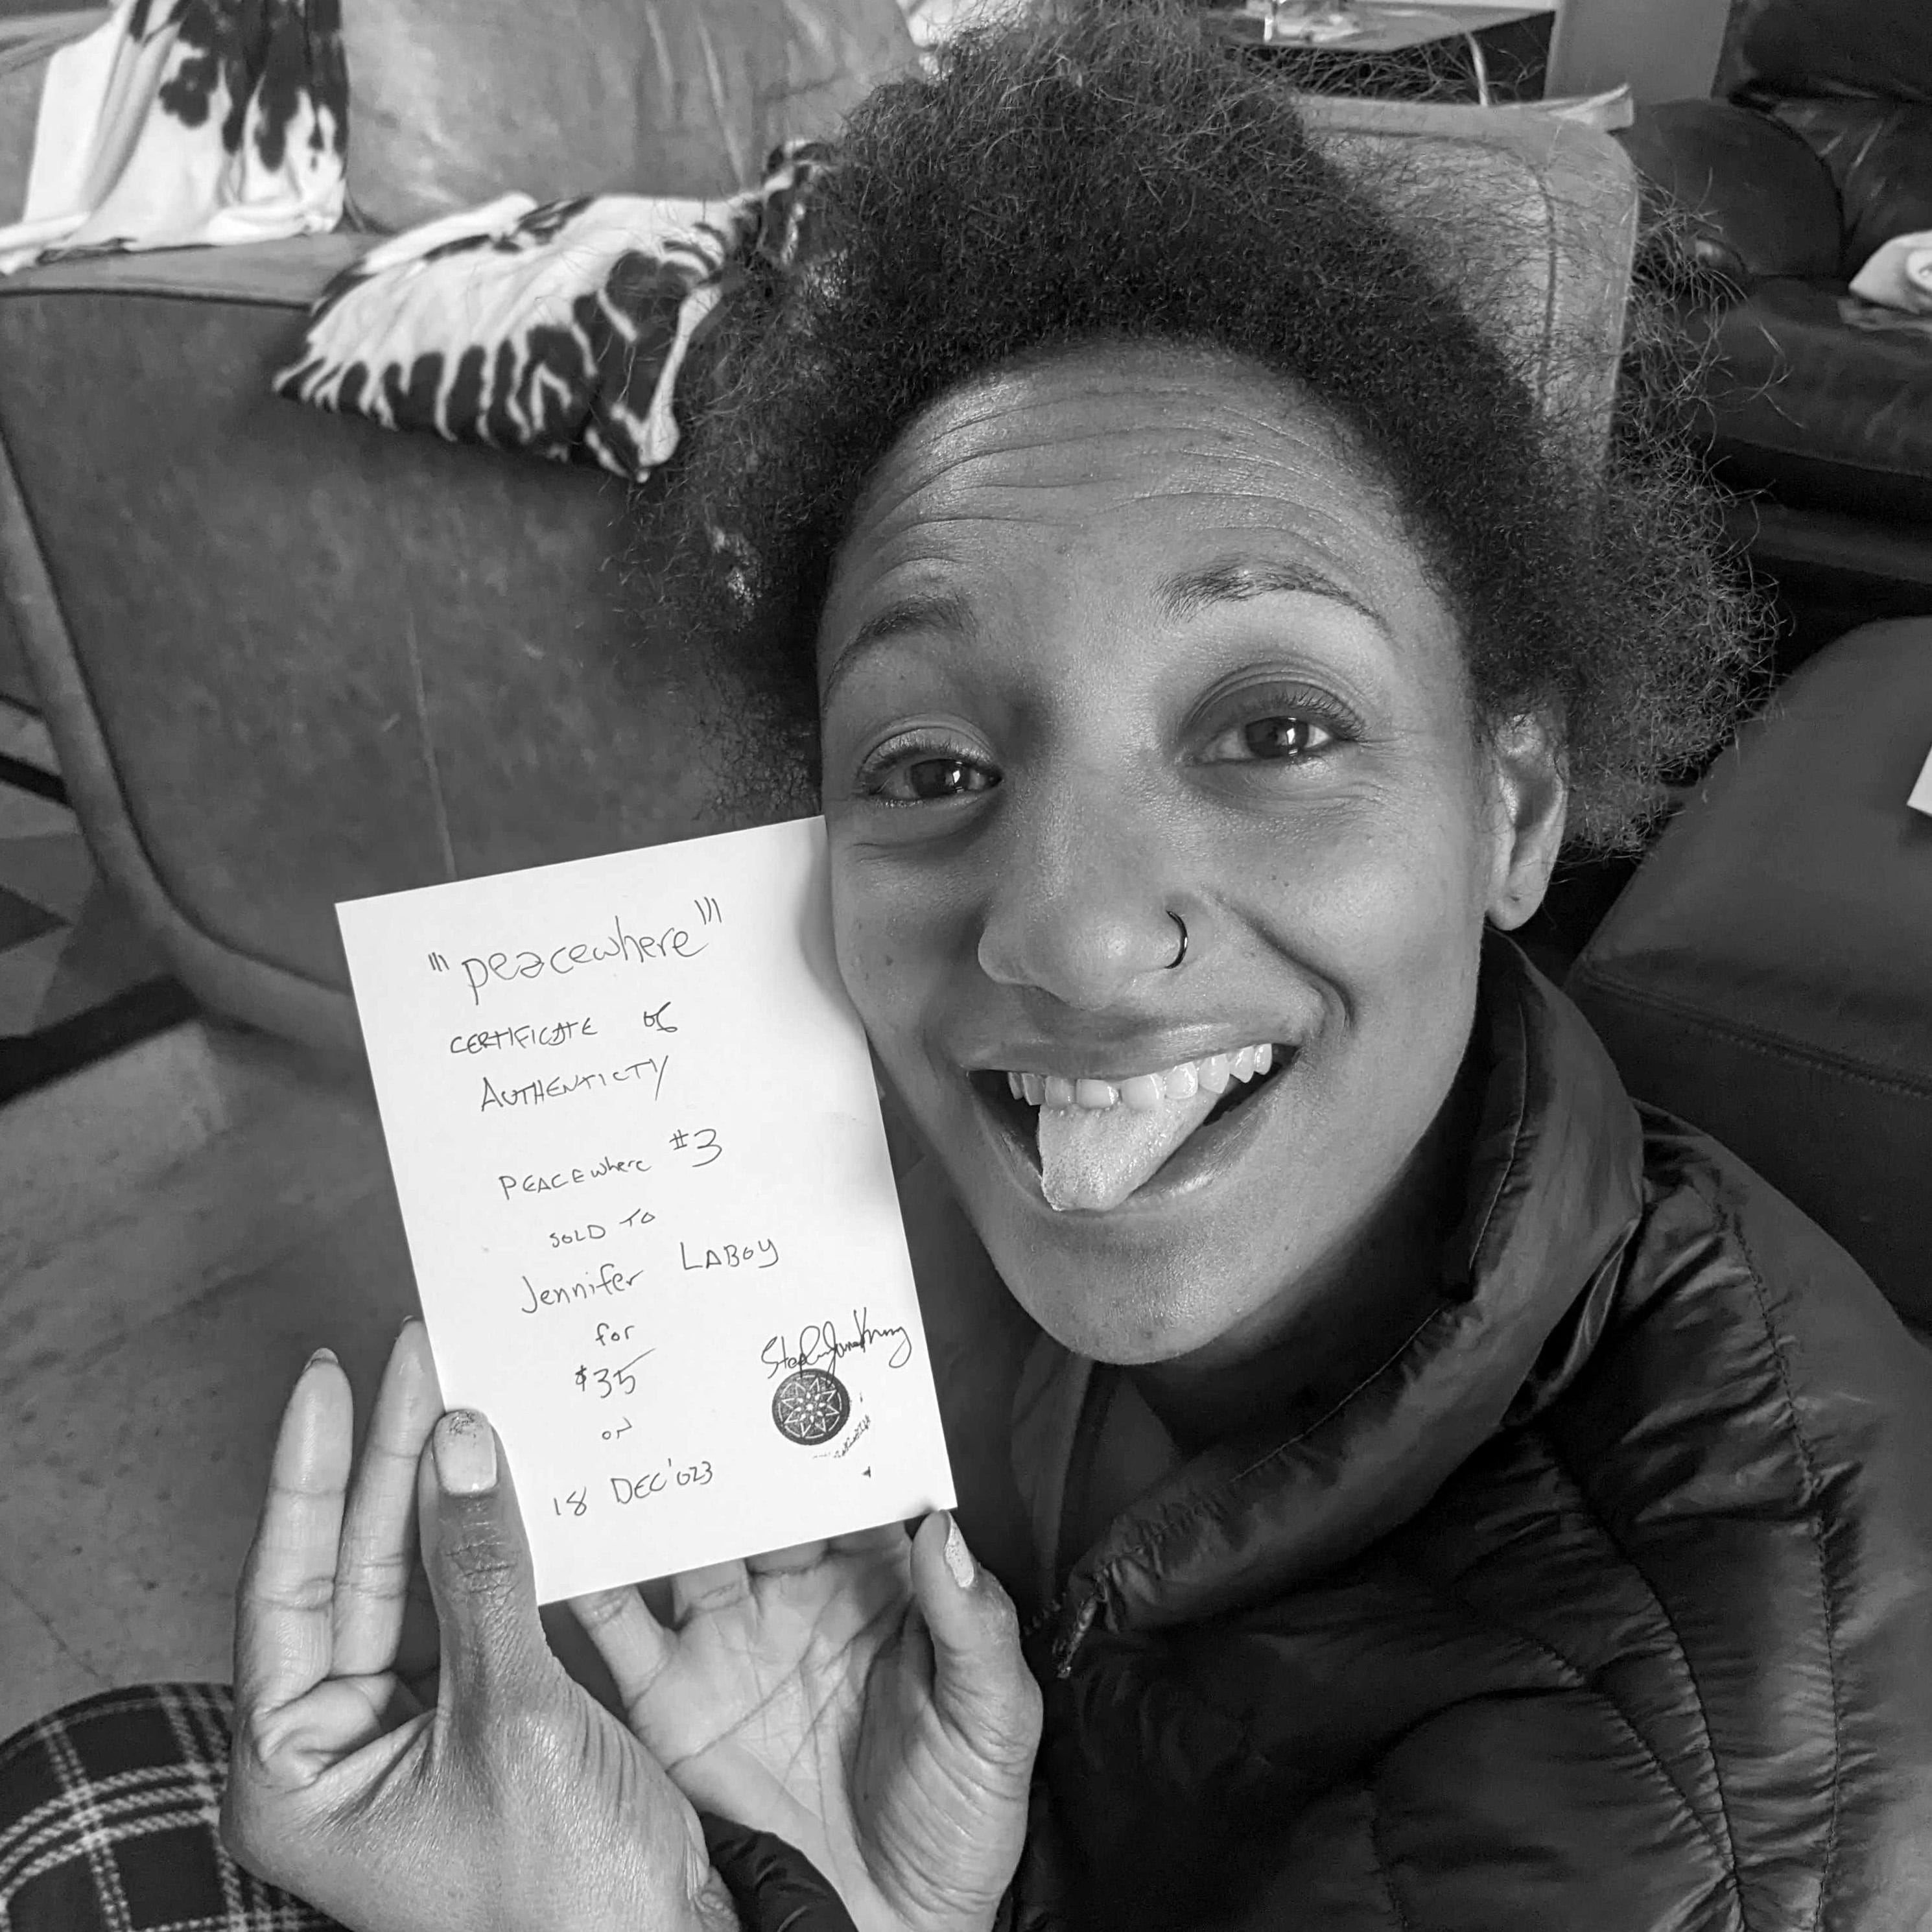 "'peacewhere'"
CERTIFICATE OF
AUTHENTICTY
PEACEwhere #3
SOLD TO
Jennifer LABOY
for
$35
ON
18 DEC '023